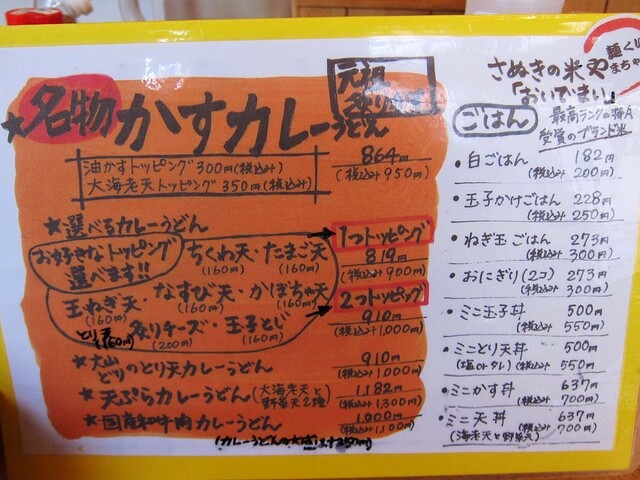 ★名物 かすカレーうどん
元祖
864円
(税込み950円)
油かすトッピング300円(税込み)
大海老天トッピング350円(税込み)
★選べるカレーうどん
お好きなトッピング
選べます!!
1つトッピング
819円
(税込み900円)
ちくわ天・たまご天
(160円) (160円)
玉ねぎ天・なすび天・かぼちゃ天
(160円) (160円) (160円)
2つトッピング
910円
(税込み1,000円)
とり天 炙りチーズ・玉子とじ
(160円) (200円) (160円)
★大山どりのとり天カレーうどん 910円
(税込み1000円)
★天ぷらカレーうどん(大海老天と野菜天2種) 1,182円
(税込み1,300円)
★国産和牛肉カレーうどん 1,000円
(税込み1,100円)
(カレーうどんの大盛は+250円)
さぬきの米や
「おいでまい」
ごはん
最高ランクの特A
受賞のブランド米
・白ごはん 182円
(税込み200円)
・玉子かけごはん 228円
(税込み250円)
・ねぎ玉ごはん 273円
(税込み300円)
・おにぎり(2コ) 273円
(税込み300円)
・ミニ玉子丼 500円
(税込み550円)
・ミニとり天丼 500円
(塩orタレ) (税込み550円)
・ミニかす丼 637円
(税込み700円)
・ミニ天丼 637円
(海老天と野菜天) (税込み700円)